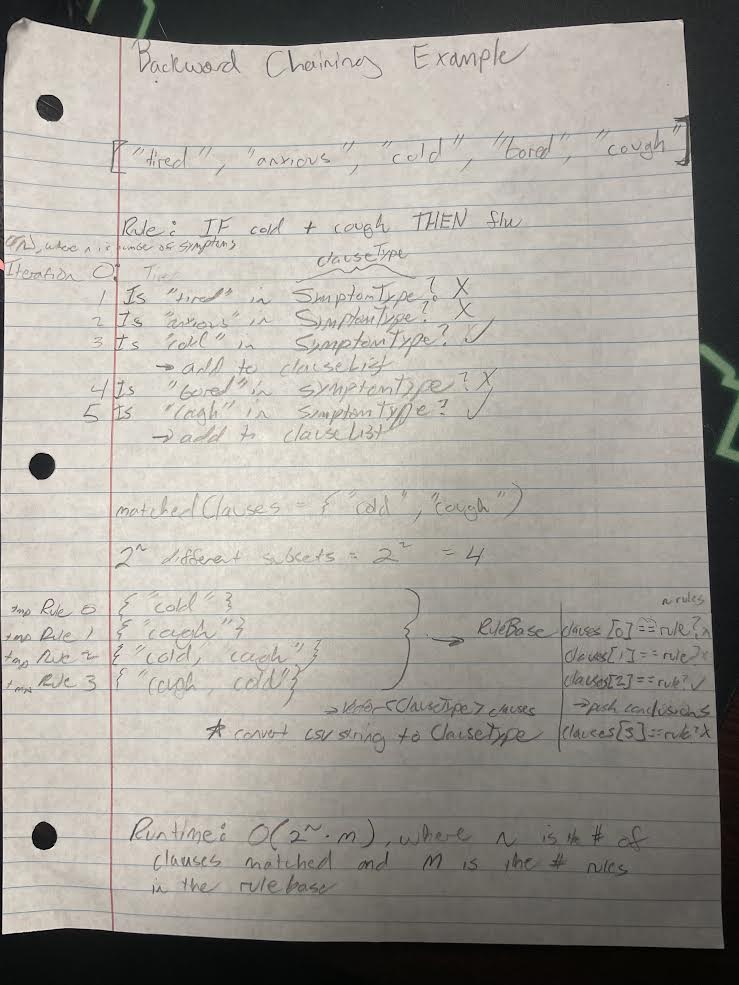 Backward Chaining Example
["tired", "anxious", "cold", "bored", "cough"]
Rule: IF cold + cough THEN flu
where n is number of symptoms
clauseType
Iteration 0:
1 Is "tired" in SymptomType? X
2 Is "anxious" in SymptomType? X
3 Is "cold" in SymptomType? ✓
→ add to clauseList
4 Is "bored" in symptomtype? X
5 Is "cough" in SymptomType? ✓
→ add to clauseList
matchedClauses = {"cold", "cough")
2^n different subsets = 2^2 = 4
n rules
tmp Rule 0 {"cold"}
tmp Rule 1 {"cough"}
tmp Rule 2 {"cold, cough"}
tmp Rule 3 {"cough, cold"}
→ RuleBase
clauses[0] == rule? X
clauses[1] == rule? X
clauses[2] == rule? ✓
→ push conclusions
clauses[3] == rule? X
→ vector<ClauseType> clauses
* convert csv string to ClauseType
Runtime: O(2^n · m), where n is the # of
clauses matched and m is the # rules
in the rulebase